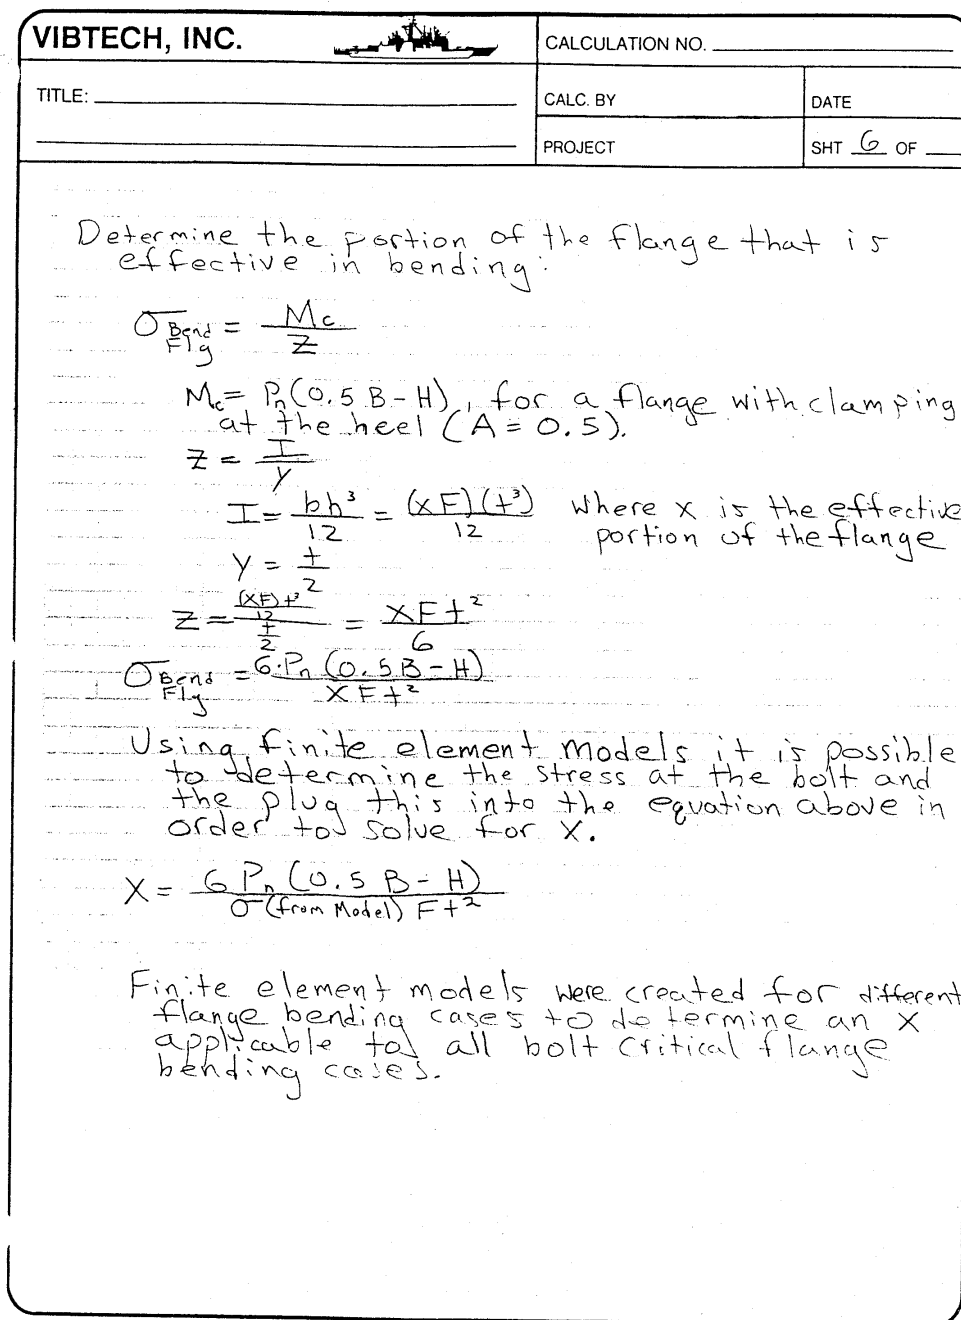 VIBTECH, INC.
CALCULATION NO.
TITLE:
CALC. BY
DATE
PROJECT
SHT 6 OF
Determine the portion of the flange that is
effective in bending:
σ Bend Flg = Mc / Z
Mc = Pn(0.5 B - H), for a flange with clamping
at the heel (A = 0.5).
Z = I / y
I = bh³ / 12 = (xF)(t³) / 12 where x is the effective
portion of the flange
y = t / 2
Z = ((xF)t³ / 12) / (t / 2) = xFt² / 6
σ Bend Flg = 6·Pn (0.5B - H) / xFt²
Using finite element models it is possible
to determine the stress at the bolt and
the plug this into the equation above in
order to solve for x.
x = 6 Pn (0.5 B - H) / σ(from Model) Ft²
Finite element models were created for different
flange bending cases to determine an x
applicable to all bolt critical flange
bending cases.